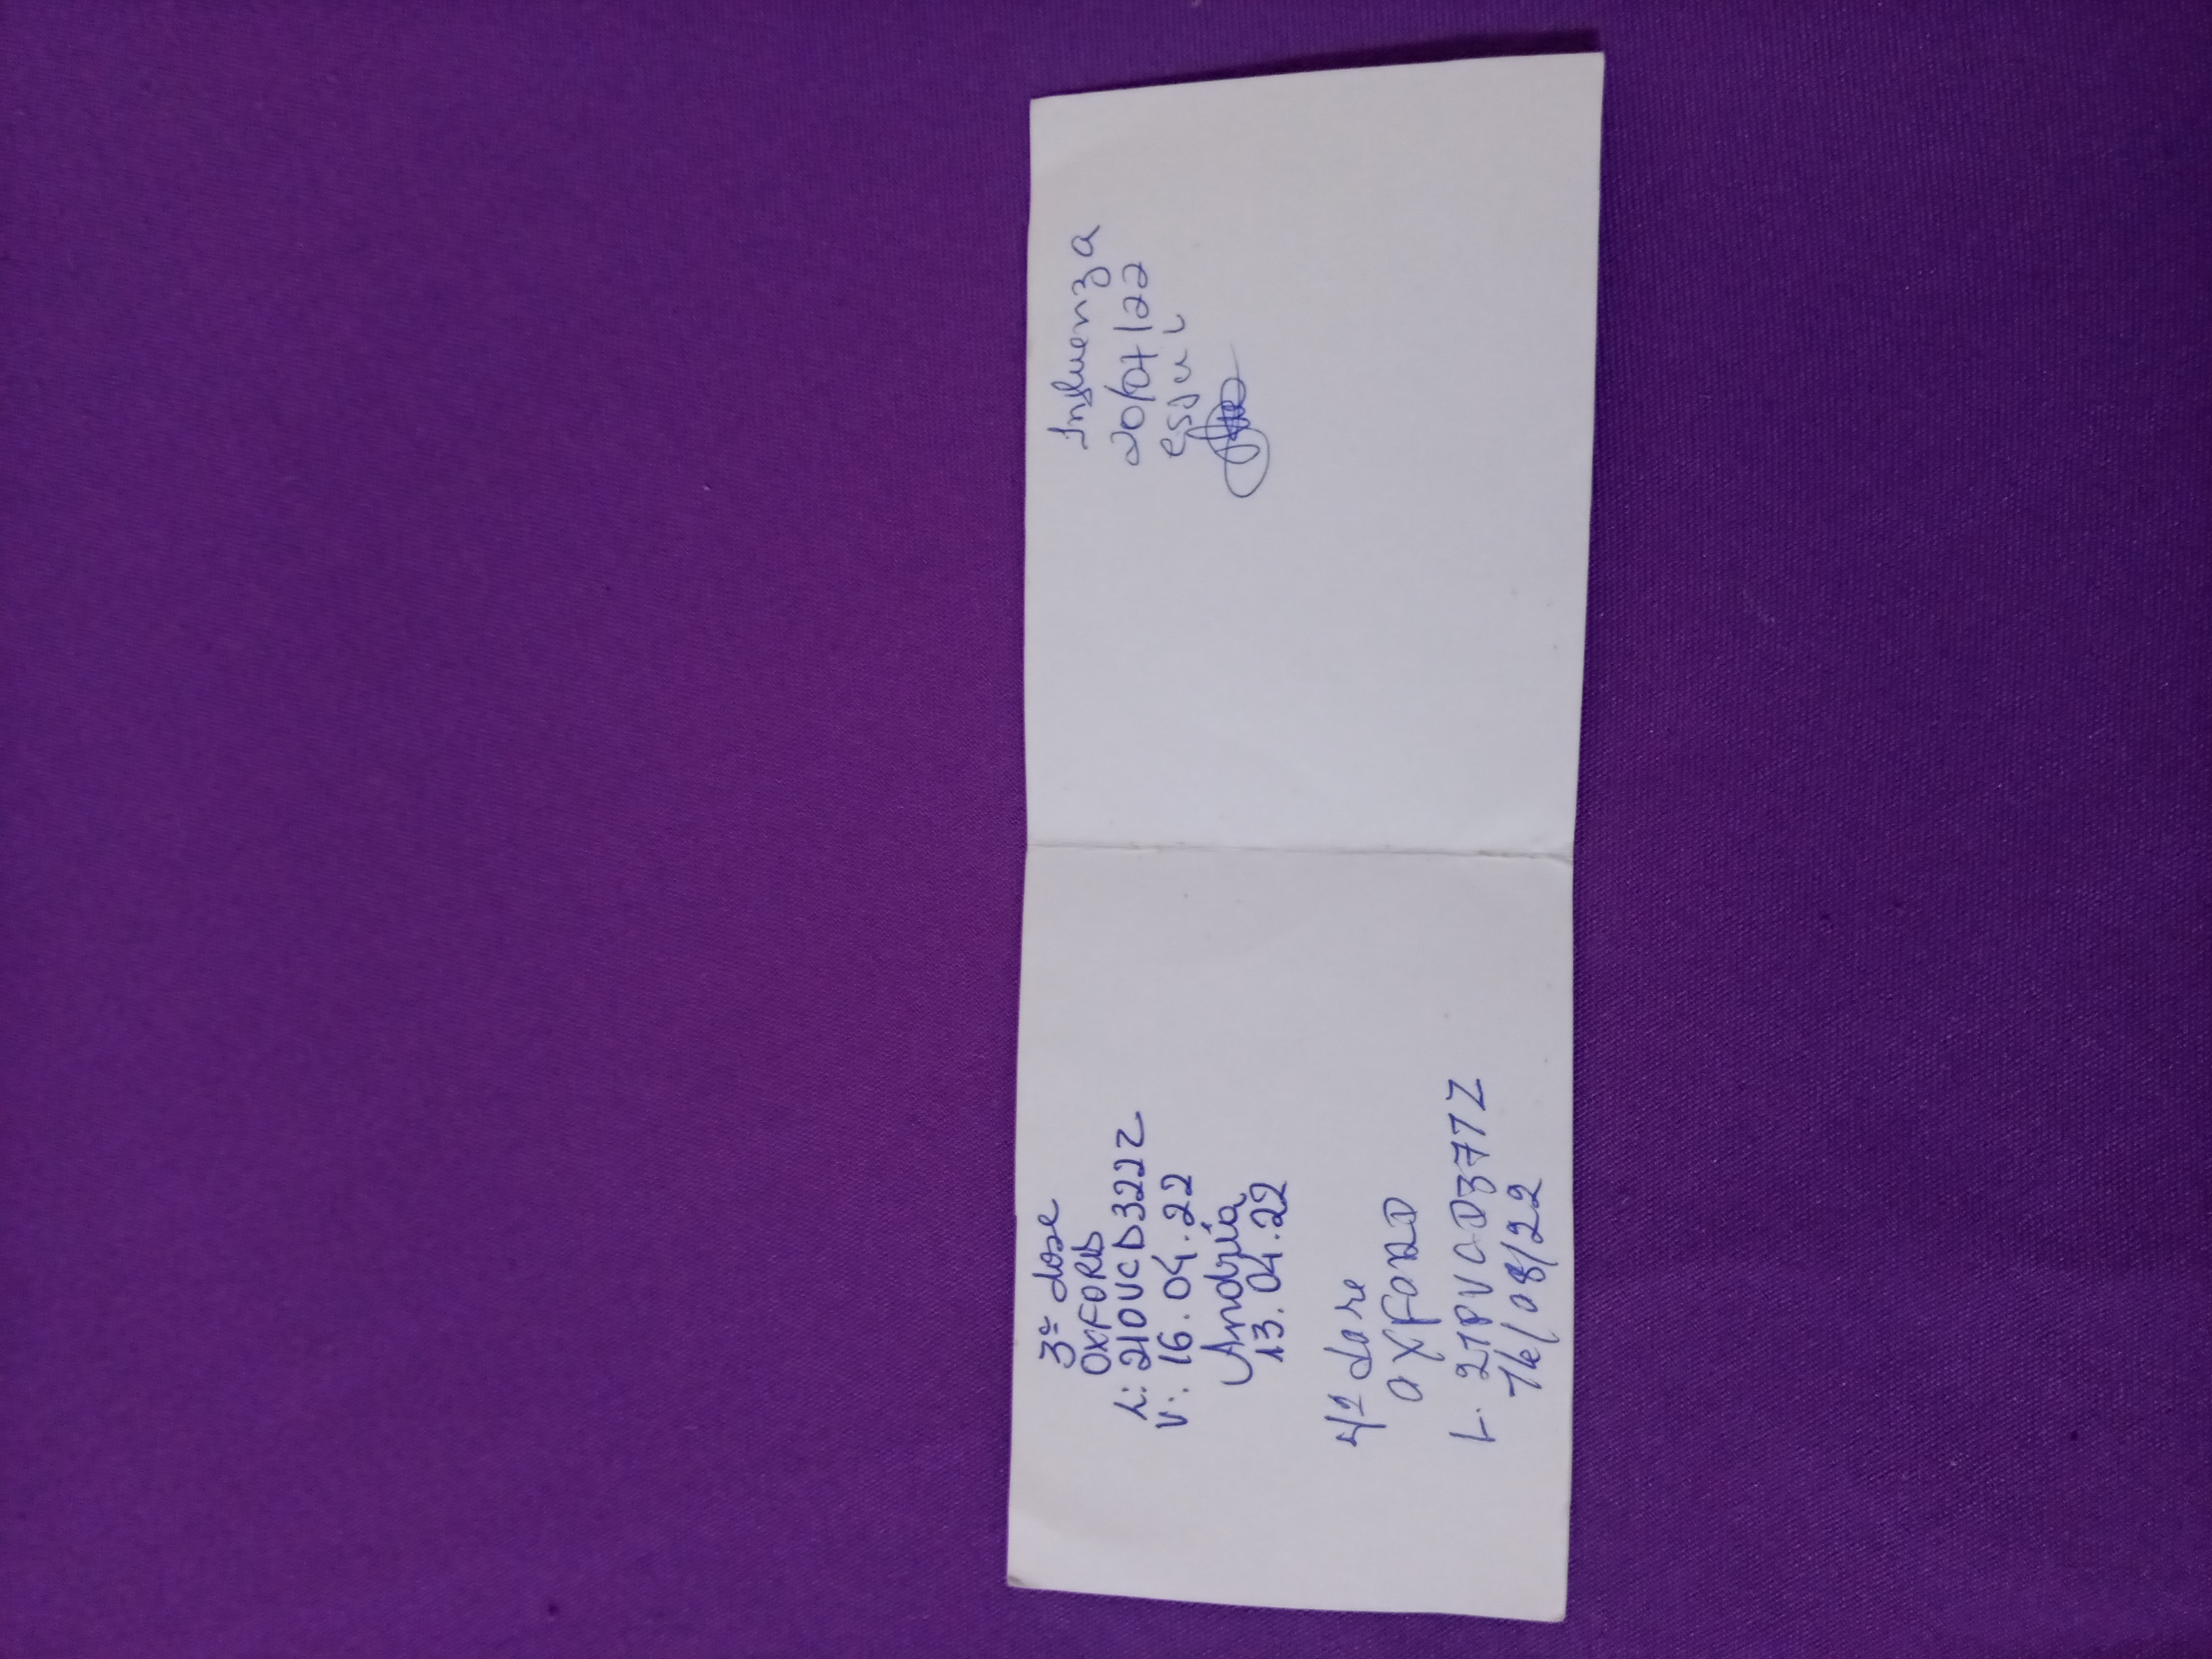 3ª dose
OXFORD
L: 210VCD322Z
V: 16.04.22
Andréia
13.04.22
4ª dose
OXFORD
L. 21PVCD371Z
16/08/22
Influenza
20/07/22